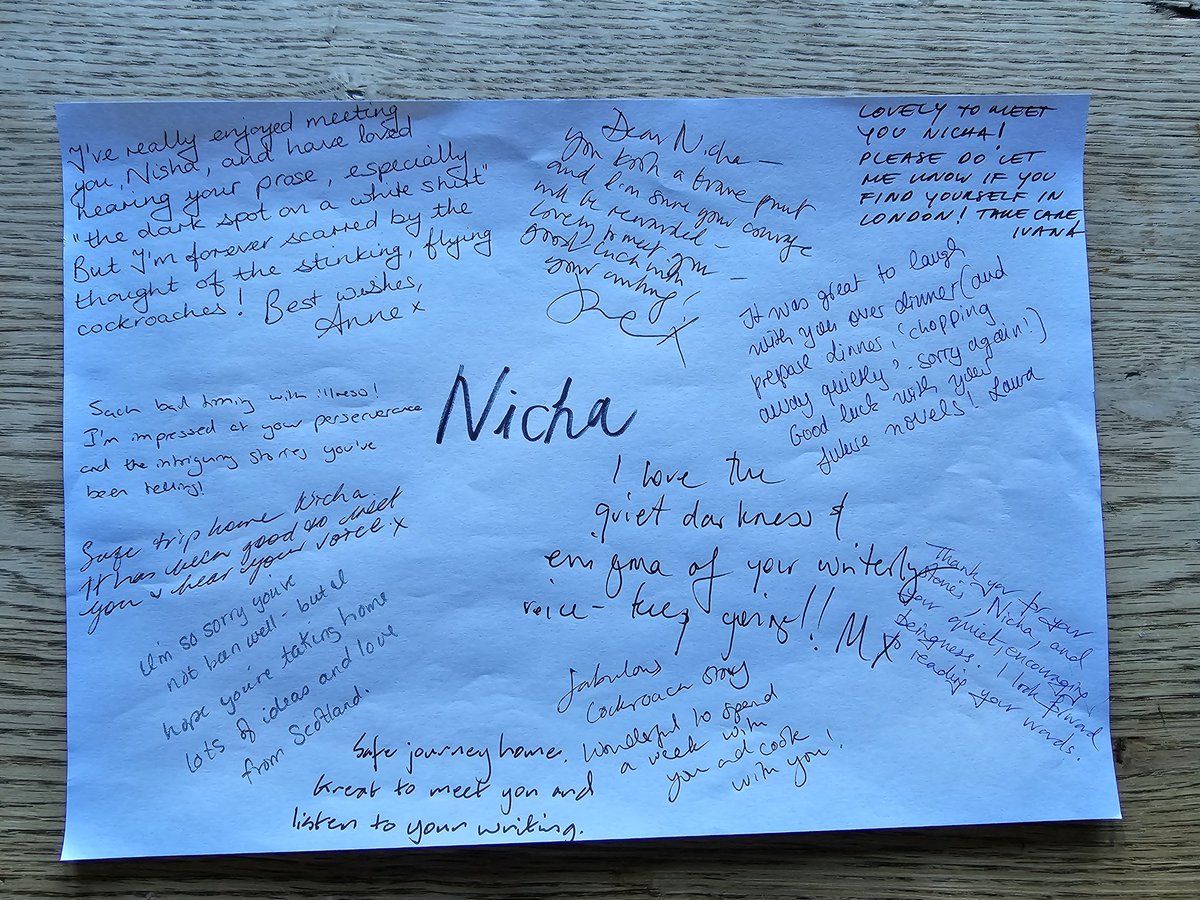 I've really enjoyed meeting
you, Nisha, and have loved
hearing your prose, especially
"the dark spot on a white shirt"
But I'm forever scarred by the
thought of the stinking, flying
cockroaches! Best wishes,
Anne x
Dear Nicha –
you took a brave punt
and I'm sure your courage
will be rewarded –
Lovely to meet you –
Good luck with
your writing!
LOVELY TO MEET
YOU NICHA!
PLEASE DO LET
ME KNOW IF YOU
FIND YOURSELF IN
LONDON! TAKE CARE,
IVANA
It was great to laugh
with you over dinner (and
prepare dinner, 'chopping
away quietly' – sorry again!)
Good luck with your
future novels! Laura
Nicha
Such bad timing with illness!
I'm impressed at your perserverance
and the intriguing stories you've
been telling!
I love the
quiet darkness &
enigma of your writerly
voice – keep going!! M x
Safe trip home Nicha
It has been good to meet
you & hear your voice. x
Thank you for your
stories, Nicha, and
your quiet, encouraging
beingness. I look forward
to reading your words.
I'm so sorry you've
not been well – but I
hope you're taking home
lots of ideas and love
from Scotland.
fabulous
cockroach story
Wonderful to spend
a week with
you and cook
with you!
Safe journey home.
Great to meet you and
listen to your writing.